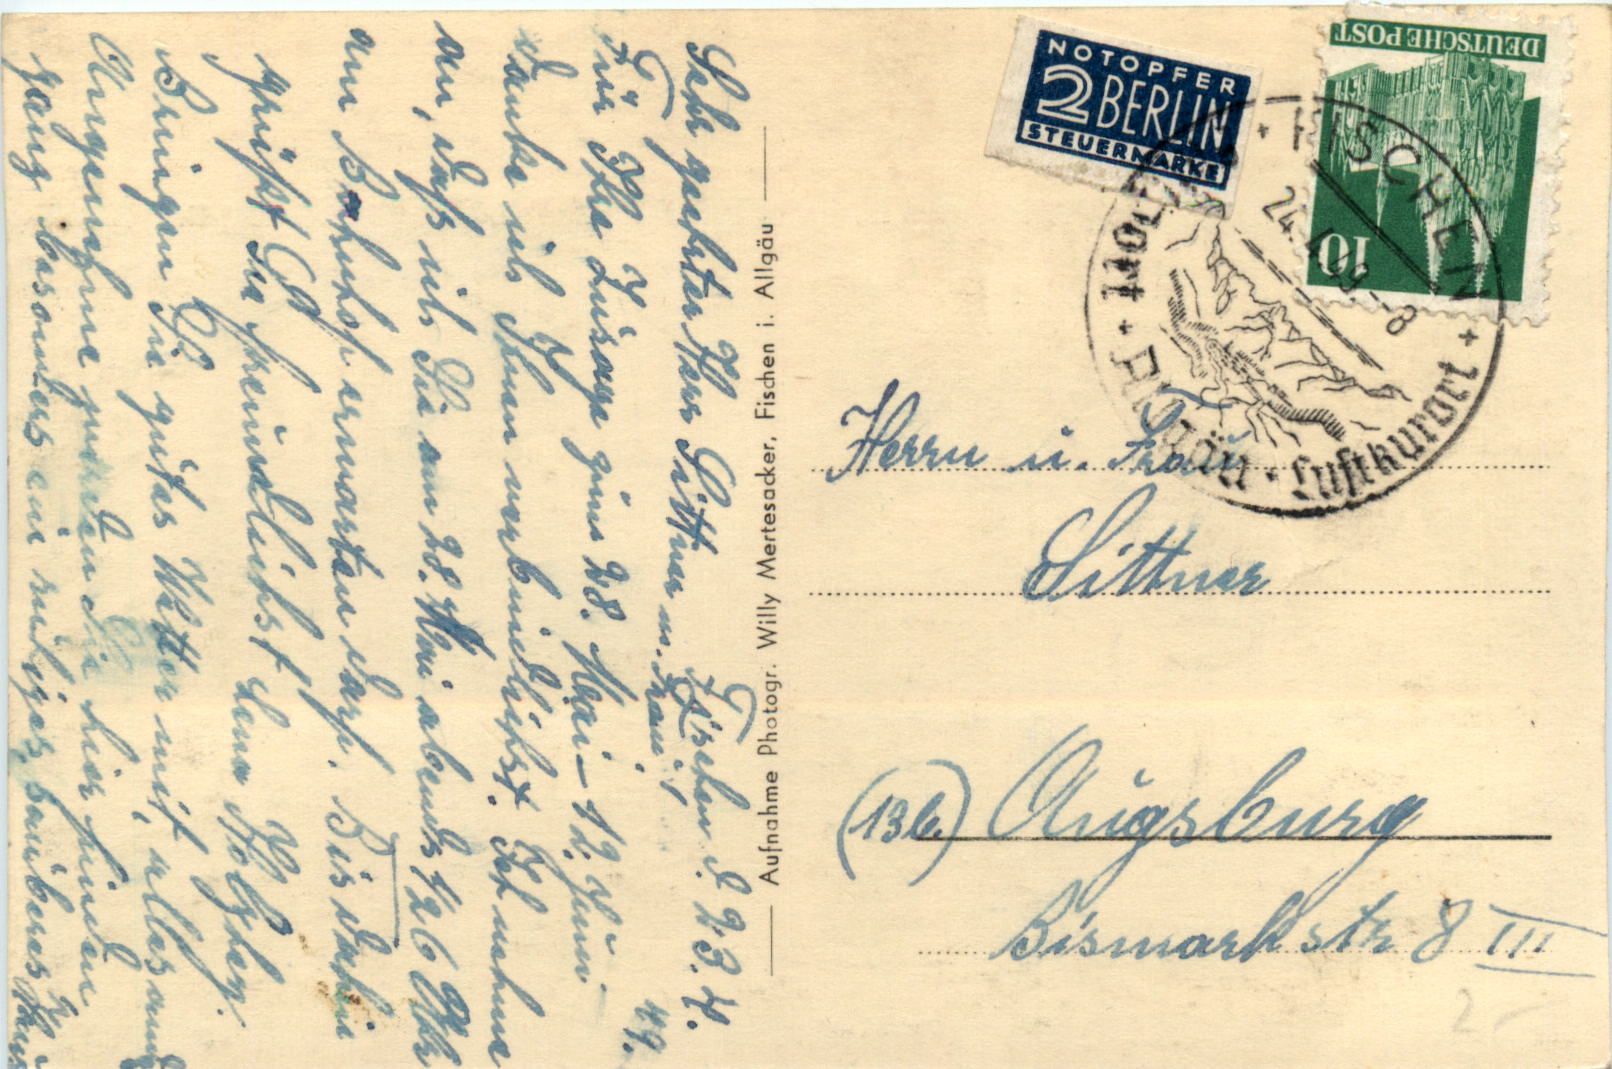 Fischen d. 23.4.
49.
Sehr geehrter Herr Sittner u. Frau!
Für Ihre Zusage zum 28. Mai – 12. Juni
danke ich Ihnen verbindlichst. Ich nehme
an, daß ich Sie am 28. Mai abends 1/2 6 Uhr
am Bahnhof erwarten darf. Bis dahin
grüßt Sie freundlichst Lena
Bringen Sie gutes Wetter mit, alles andre
Angenehme werden Sie hier finden
ganz besonders ein ruhiges, sauberes Haus
Aufnahme Photogr. Willy Mertesacker, Fischen i. Allgäu
NOTOPFER
2 BERLIN
STEUERMARKE
DEUTSCHE POST
10
FISCHEN
24.4.49.-8
Luftkurort
Herrn u. Frau
Sittner
(13b) Augsburg
Bismarkstr 8 III
2-